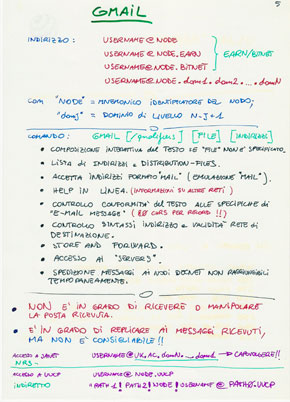 5
GMAIL
INDIRIZZO: USERNAME@NODE
USERNAME@NODE.EARN
USERNAME@NODE.BITNET
EARN/BITNET
USERNAME@NODE.dom1.dom2....domN
CON "NODE" = MNEMONICO IDENTIFICATORE DEL NODO;
"domJ" = DOMINIO DI LIVELLO N-J+1
COMANDO: GMAIL [/qualifiers] [FILE] [INDIRIZZO]
• COMPOSIZIONE INTERATTIVA DEL TESTO SE "FILE" NON E' SPECIFICATO.
• LISTA DI INDIRIZZI E DISTRIBUTION-FILES.
• ACCETTA INDIRIZZI FORMATO "MAIL" (EMULAZIONE "MAIL").
• HELP IN LINEA. (INFORMAZIONI SU ALTRE RETI)
• CONTROLLO CONFORMITA' DEL TESTO ALLE SPECIFICHE DI
"E-MAIL MESSAGE" (80 CHRS PER RECORD !!)
• CONTROLLO SINTASSI INDIRIZZO E VALIDITA' RETE DI
DESTINAZIONE.
• STORE AND FORWARD.
• ACCESSO AI "SERVERS".
• SPEDIZIONE MESSAGGI AI NODI DECNET NON RAGGIUNGIBILI
TEMPORANEAMENTE.
• NON E' IN GRADO DI RICEVERE O MANIPOLARE
LA POSTA RICEVUTA.
• E' IN GRADO DI REPLICARE AI MESSAGGI RICEVUTI,
MA NON E' CONSIGLIABILE!!
ACCESSO A JANET USERNAME@UK.AC.domN.....dom1 → CAPOVOLGERE!!
NRS-
ACCESSO A UUCP USERNAME@NODE.UUCP
INDIRETTO "PATH1!PATH2!NODE!USERNAME"@PATH0.UUCP